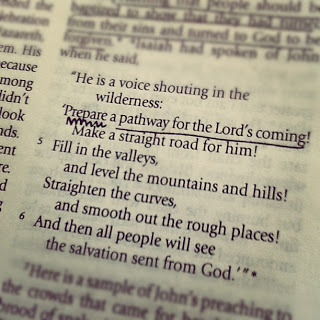 that people should be
baptized to show that they had turned
from their sins and turned to God to be
forgiven. Isaiah had spoken of John
when he said,
"He is a voice shouting in the
wilderness:
'Prepare a pathway for the Lord's coming!
Make a straight road for him!
5 Fill in the valleys,
and level the mountains and hills!
Straighten the curves,
and smooth out the rough places!
6 And then all people will see
the salvation sent from God.'"*
"Here is a sample of John's preaching to
the crowds that came for
brood of
Nazareth,
em. His
ecause
mong
didn't
look
nds.
ent
re.
d